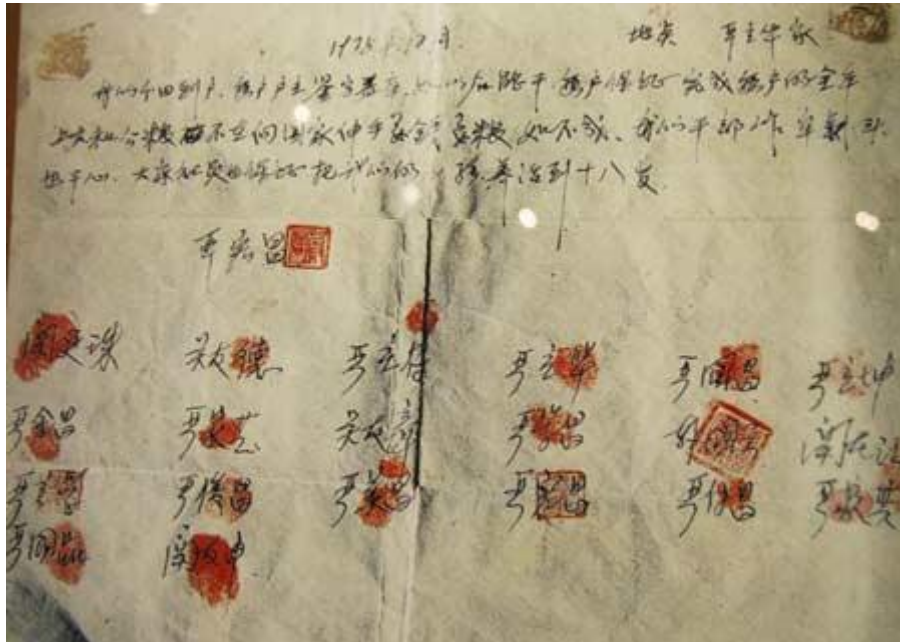 1978年12月 地点 严立华家
我们分田到户，每户户主签字盖章，如以后能干，每户保证完成每户的全年
上交和公粮，不在向国家伸手要钱要粮，如不成，我们干部作牢杀头
也干心，大家社员也保证把我们的小孩养活到十八岁
严宏昌
关廷珠 关友德 严立符 严立华 严国昌 严立坤
严金昌 严家芝 关友章 严学昌 韩国云 关友江
严立学 严俊昌 严美昌 严宏昌 严付昌 严家其
严国品 关友申